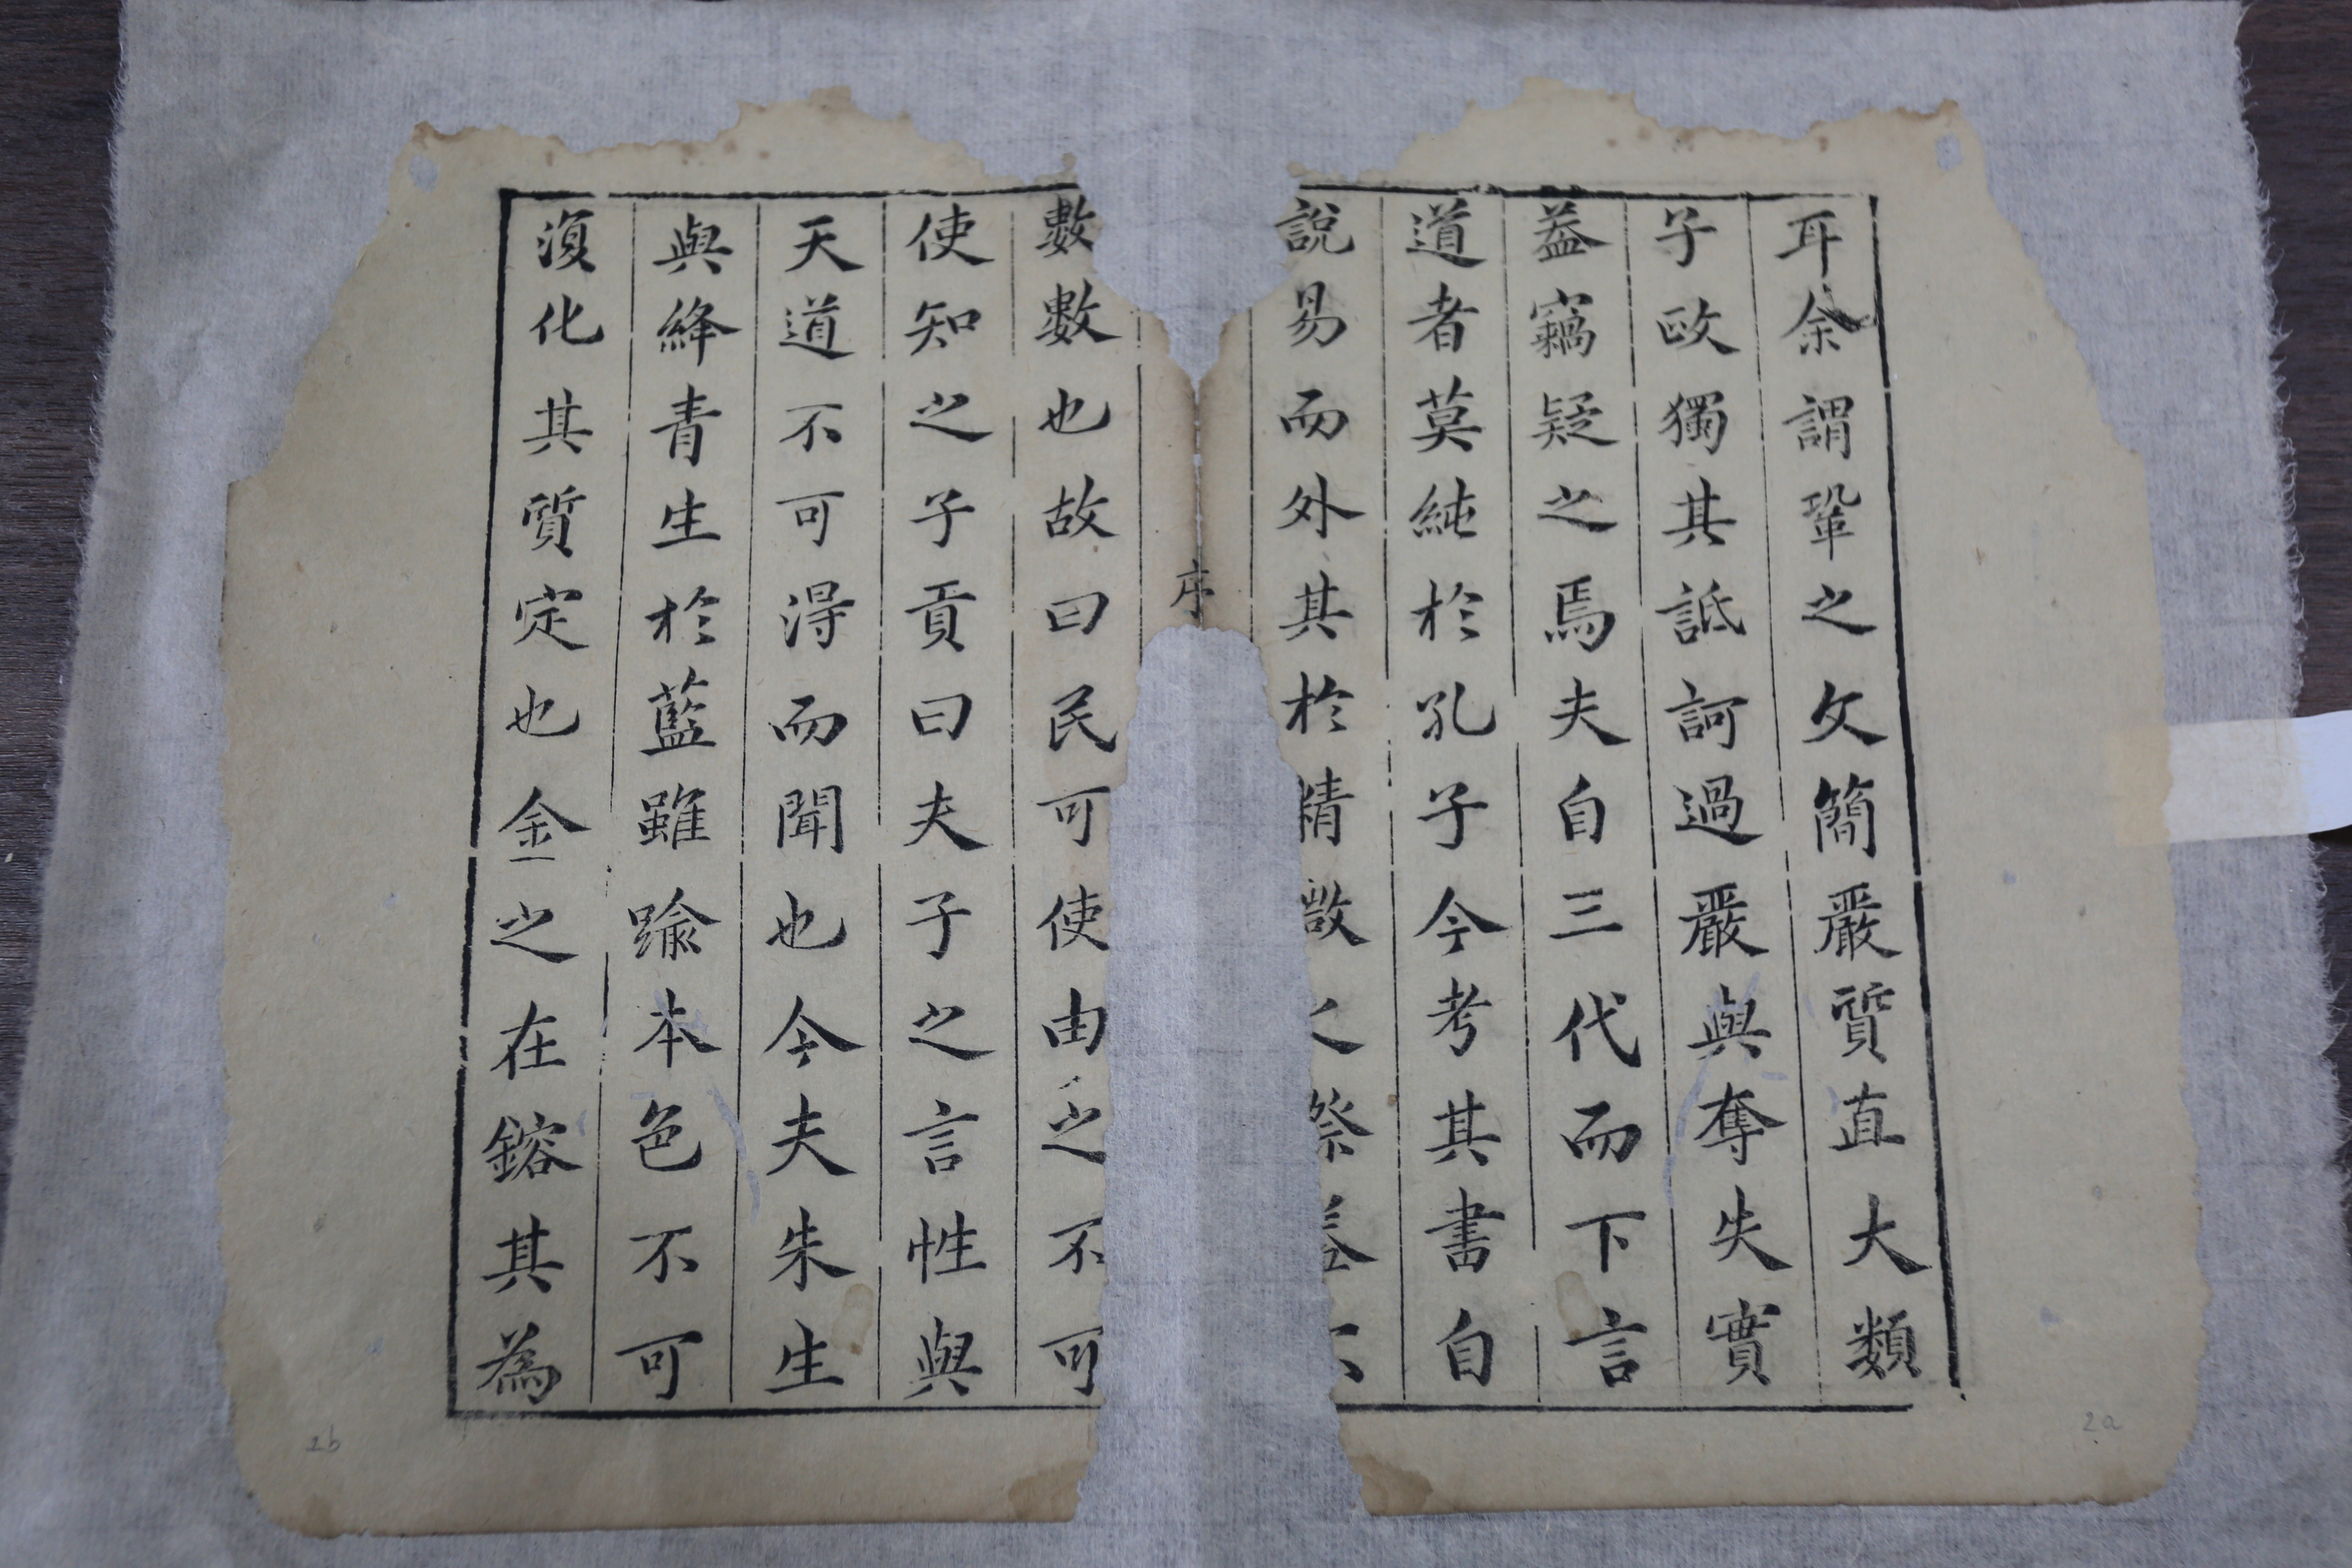 耳余謂鞏之文簡嚴質直大類
子歐獨其詆訶過嚴與奪失實
葢竊疑之焉夫自三代而下言
道者莫純於孔子今考其書自
說易而外其於精微之際葢不
序
數數也故曰民可使由之不可
使知之子貢曰夫子之言性與
天道不可淂而聞也今夫朱生
與絳青生於藍雖踰本色不可
澓化其質定也金之在鎔其為
2b
2a